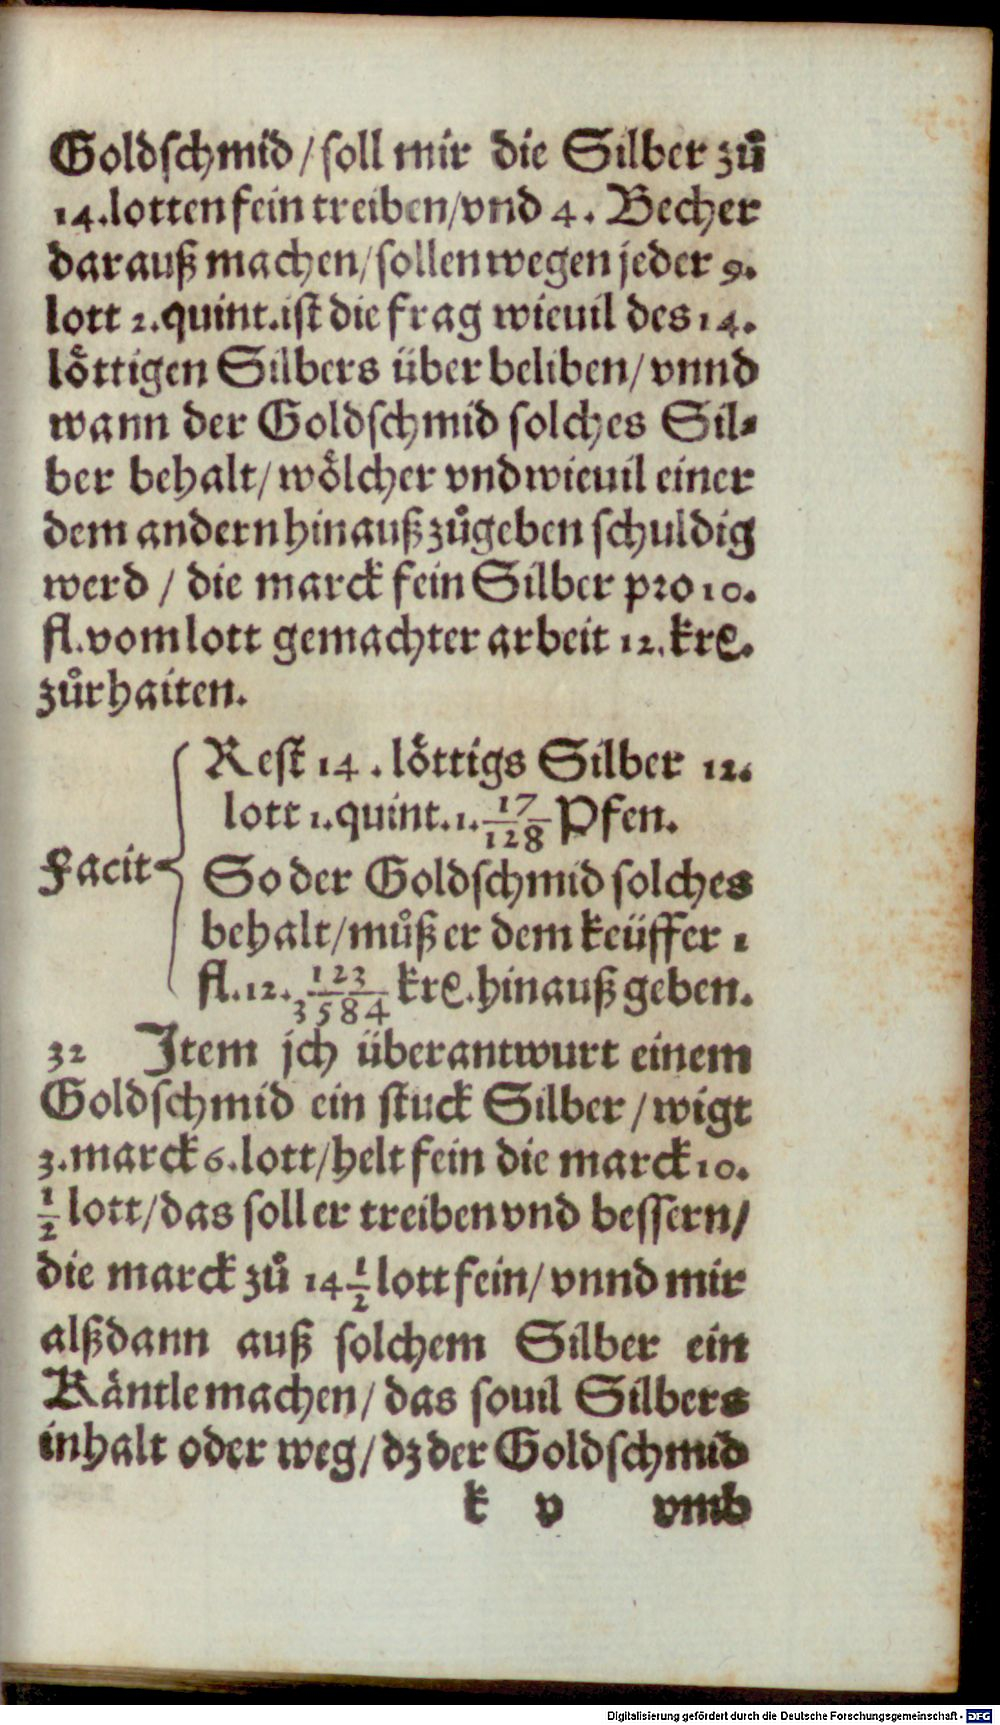 Goldschmid / soll mir die Silber zů
14. lotten fein treiben / vnd 4. Becher
darauß machen / sollen wegen jeder 9.
lott 2. quint. ist die frag wieuil des 14.
loͤttigen Silbers über beliben / vnnd
wann der Goldschmid solches Sil⸗
ber behalt / woͤlcher vnd wieuil einer
dem andern hinauß zůgeben schuldig
werd / die marck fein Silber pro 10.
fl. vom lott gemachter arbeit 12. krꝭ.
zůrhaiten.
Rest 14. loͤttigs Silber 12.
lott 1. quint. 1. 17/128 Pfen.
Facit
So der Goldschmid solches
behalt / můß er dem keüffer 1
fl. 12. 123/3584 krꝭ. hinauß geben.
32 Item jch überantwurt einem
Goldschmid ein stuck Silber / wigt
3. marck 6. lott / helt fein die marck 10.
1/2 lott / das soll er treiben vnd bessern /
die marck zů 14 1/2 lott fein / vnnd mir
alßdann auß solchem Silber ein
Kaͤntle machen / das souil Silbers
inhalt oder weg / dz der Goldschmid
k v vmb
Digitalisierung gefördert durch die Deutsche Forschungsgemeinschaft - DFG